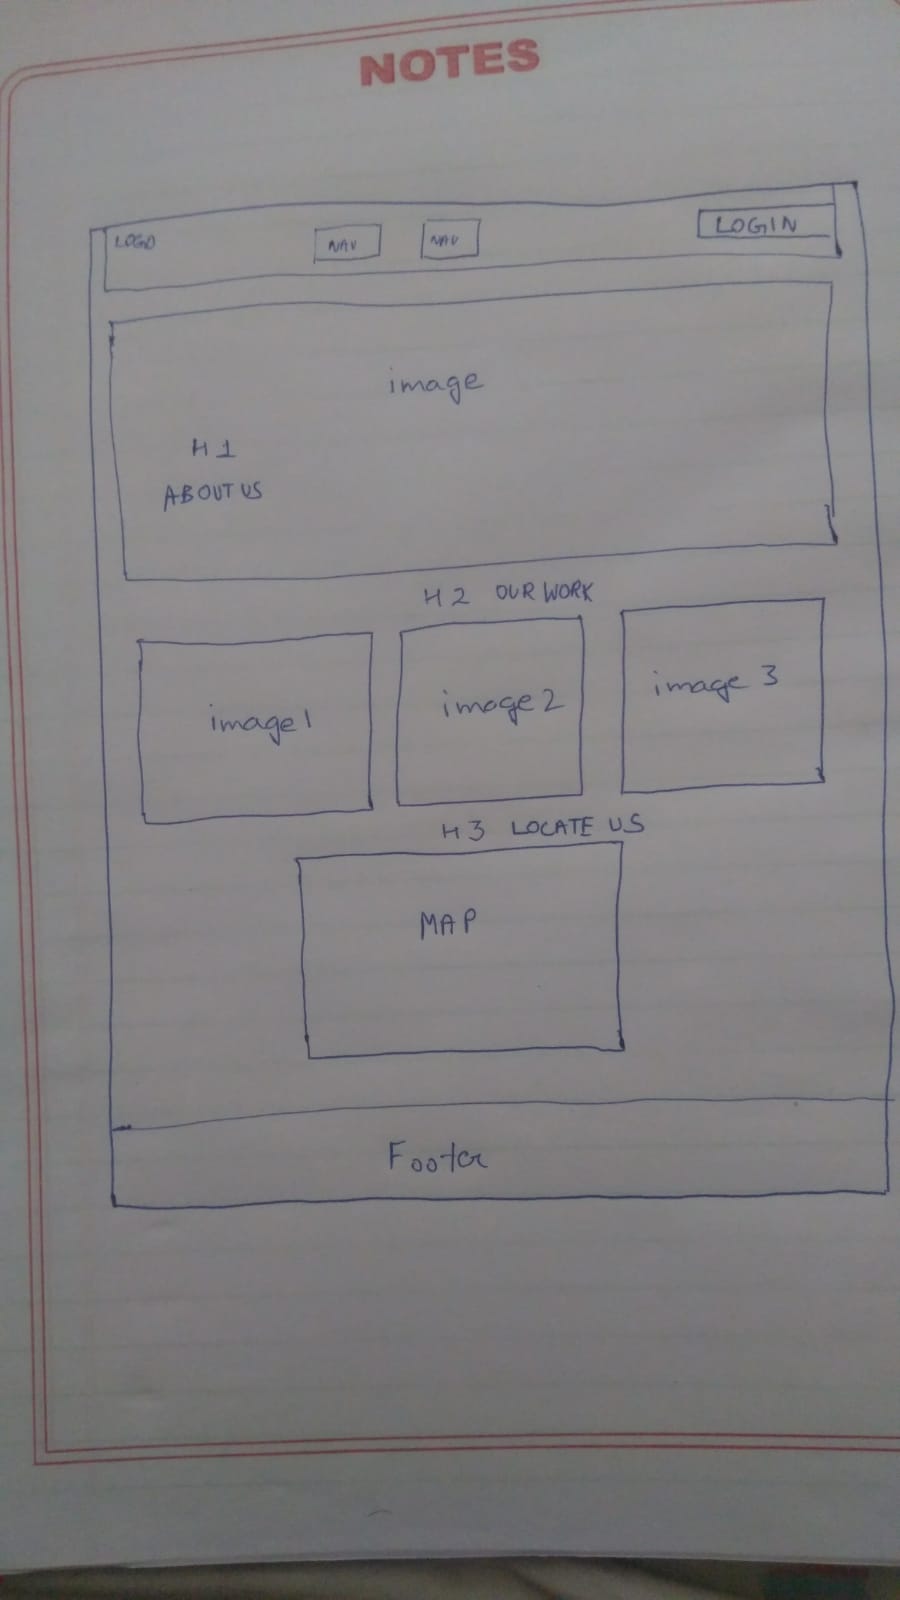 NOTES
LOGO NAV NAV LOGIN
image
H1
ABOUT US
H2 OUR WORK
image1 image2 image 3
H3 LOCATE US
MAP
Footer